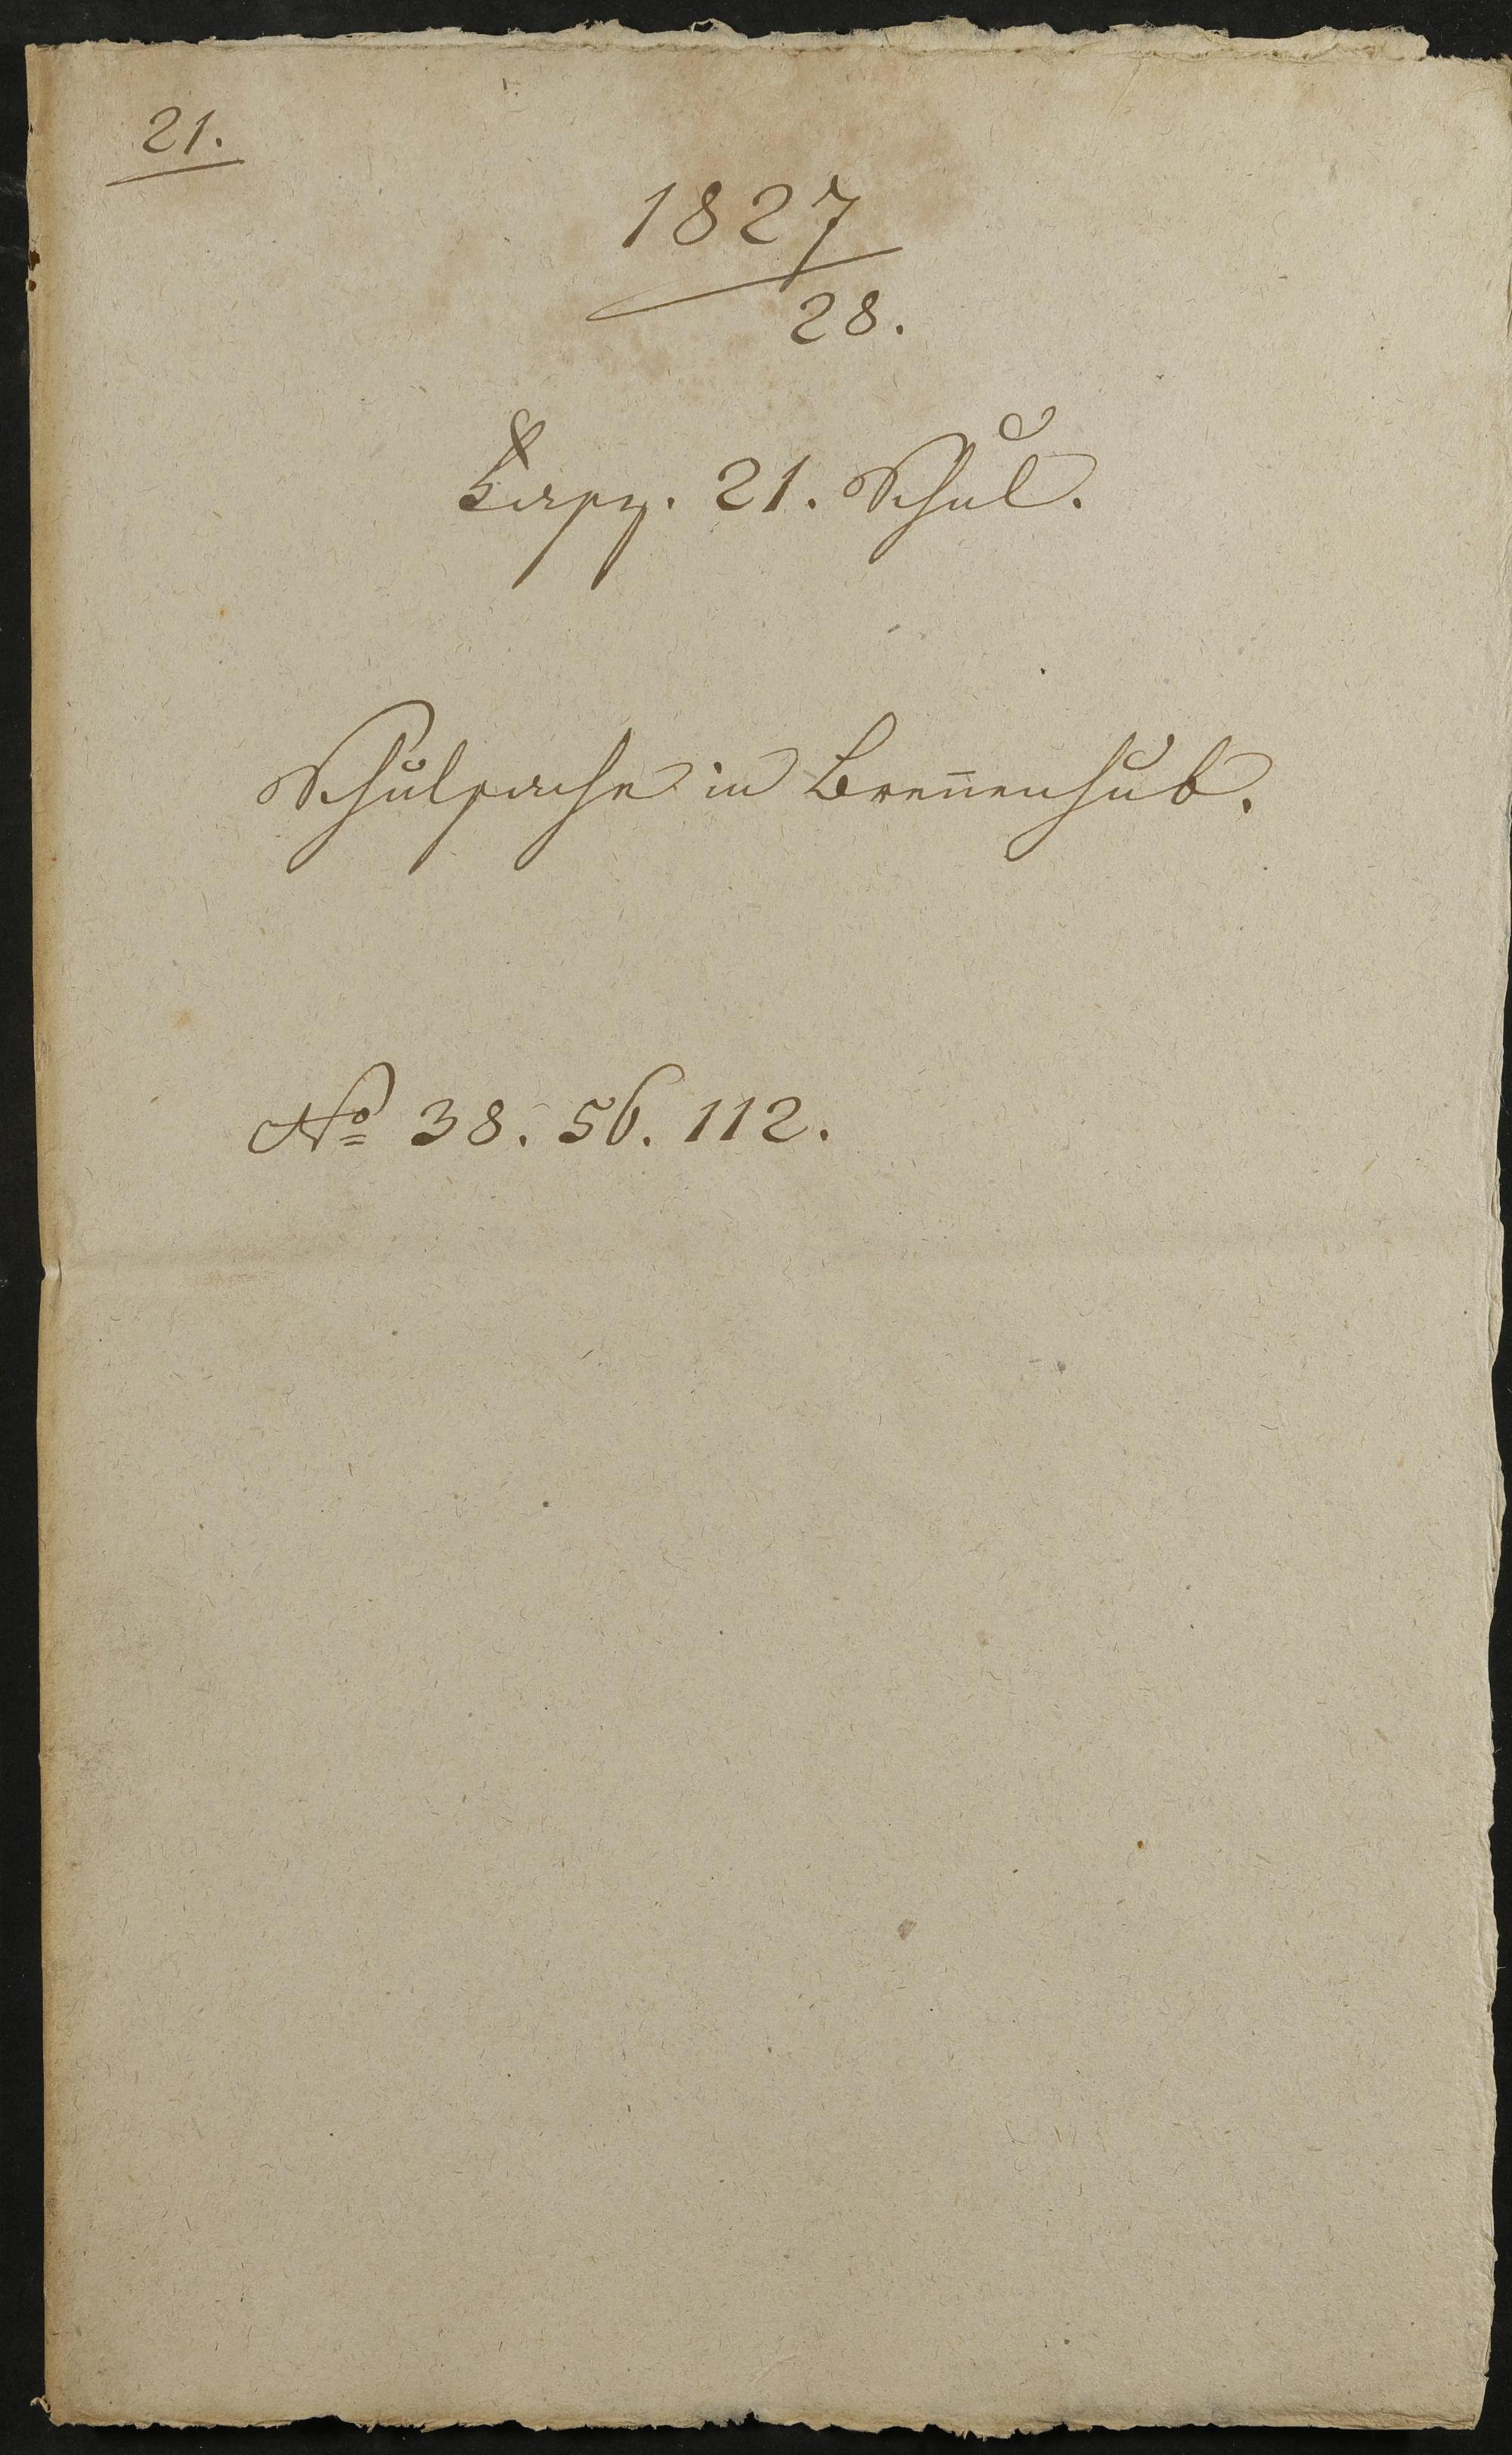 21.
1827
28.
Fasz. 21. Schul.
Schulsache in Breñenhub.
No 38. 56. 112.